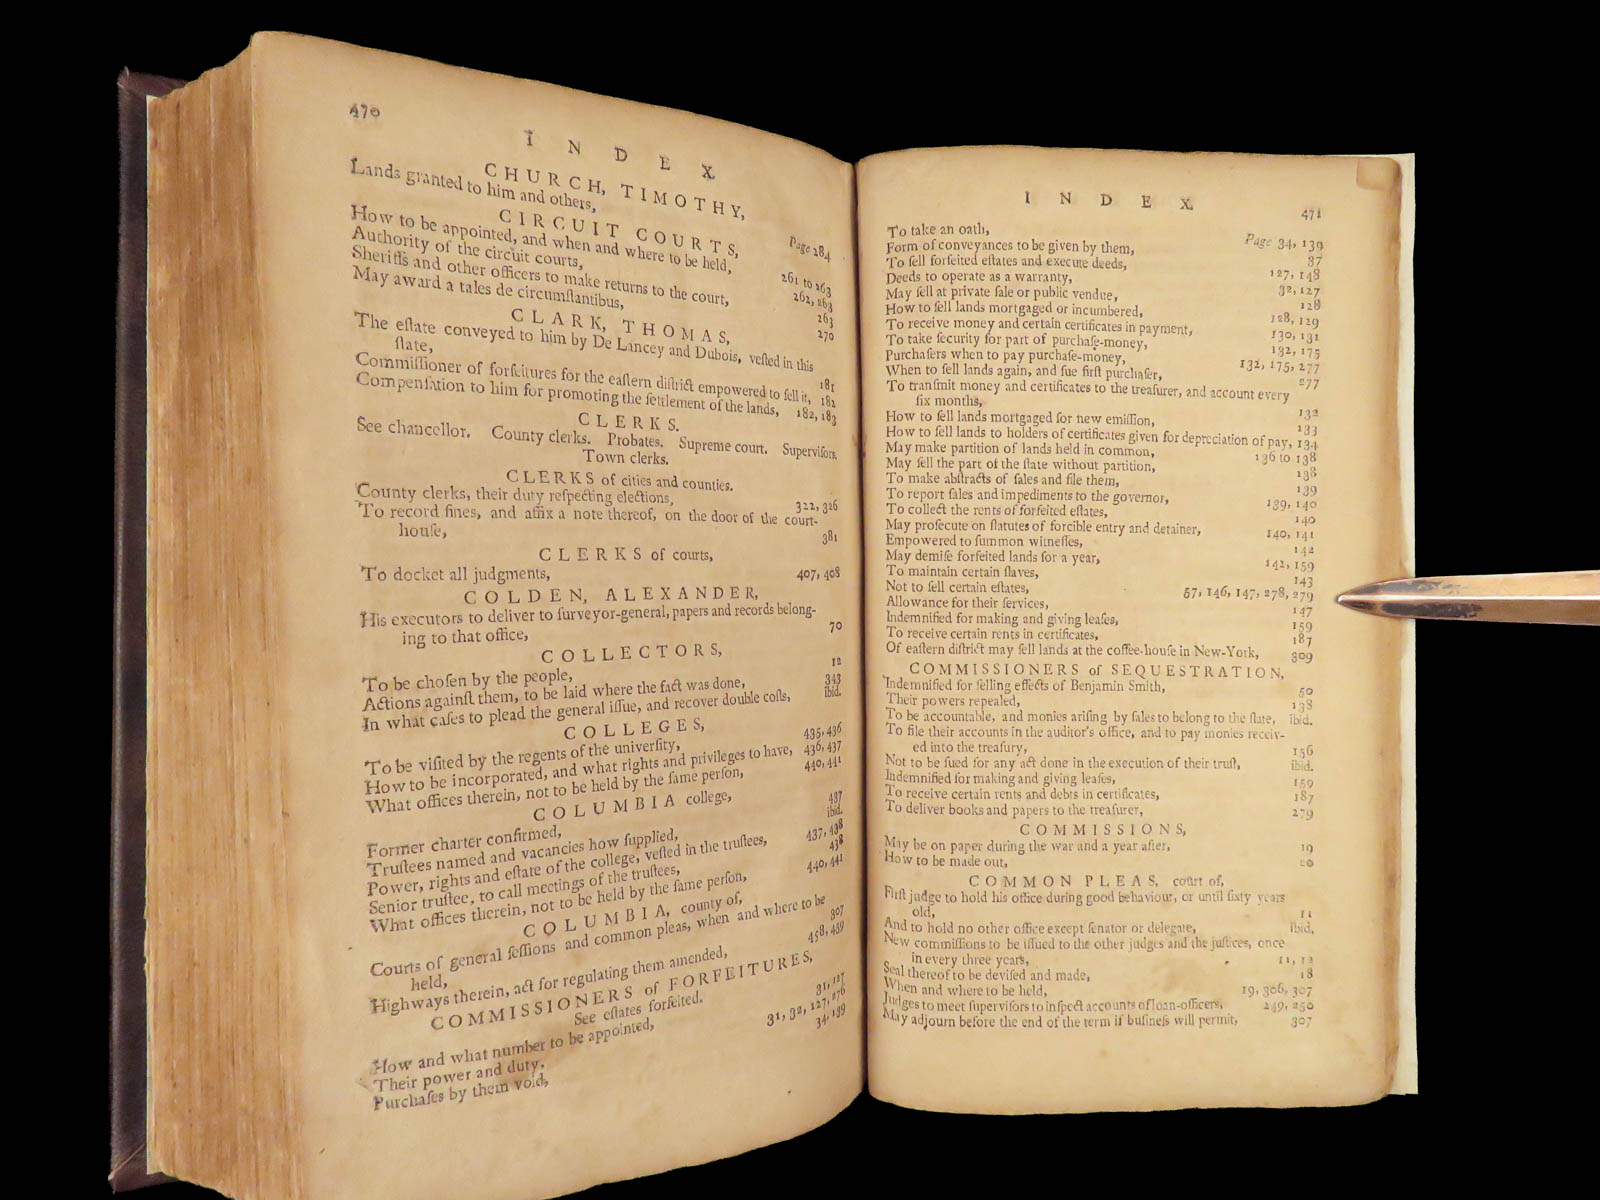 470
I N D E X
CHURCH, TIMOTHY,
Lands granted to him and others, Page 284
CIRCUIT COURTS,
How to be appointed, and when and where to be held, 261 to 263
Authority of the circuit courts, 262, 263
Sheriffs and other officers to make returns to the court, 263
May award a tales de circumſtantibus, 270
CLARK, THOMAS,
The eſtate conveyed to him by De Lancey and Dubois, veſted in this
ſtate, 181
Commiſſioner of forfeitures for the eaſtern diſtrict empowered to ſell it, 182
Compenſation to him for promoting the ſettlement of the lands, 182, 183
CLERKS.
See chancellor. County clerks. Probates. Supreme court. Superviſors.
Town clerks.
CLERKS of cities and counties.
County clerks, their duty reſpecting elections, 322, 326
To record fines, and affix a note thereof, on the door of the court-
houſe, 381
CLERKS of courts,
To docket all judgments, 407, 408
COLDEN, ALEXANDER,
His executors to deliver to ſurveyor-general, papers and records belong-
ing to that office, 70
COLLECTORS,
To be choſen by the people, 12
Actions againſt them, to be laid where the fact was done, 343
In what caſes to plead the general iſſue, and recover double coſts, ibid.
COLLEGES,
To be viſited by the regents of the univerſity, 435, 436
How to be incorporated, and what rights and privileges to have, 436, 437
What offices therein, not to be held by the ſame perſon, 440, 441
COLUMBIA college,
Former charter confirmed, 437
Truſtees named and vacancies how ſupplied, ibid.
Power, rights and eſtate of the college, veſted in the truſtees, 437, 438
Senior truſtee, to call meetings of the truſtees, 438
What offices therein, not to be held by the ſame perſon, 440, 441
COLUMBIA, county of,
Courts of general ſeſſions and common pleas, when and where to be
held, 307
Highways therein, act for regulating them amended, 458, 459
COMMISSIONERS of FORFEITURES,
See eſtates forfeited.
How and what number to be appointed, 31, 127
Their power and duty, 31, 32, 127, 276
Purchaſes by them void, 34, 139
I N D E X 471
To take an oath, Page 34, 139
Form of conveyances to be given by them, 37
To ſell forfeited eſtates and execute deeds, 127, 148
Deeds to operate as a warranty, 32, 127
May ſell at private ſale or public vendue, 128
How to ſell lands mortgaged or incumbered, 128, 129
To receive money and certain certificates in payment, 130, 131
To take ſecurity for part of purchaſe-money, 132, 175
Purchaſers when to pay purchaſe-money, 132, 175, 277
When to ſell lands again, and ſue firſt purchaſer, 277
To tranſmit money and certificates to the treaſurer, and account every
ſix months, 132
How to ſell lands mortgaged for new emiſſion, 133
How to ſell lands to holders of certificates given for depreciation of pay, 134
May make partition of lands held in common, 136 to 138
May ſell the part of the ſtate without partition, 138
To make abſtracts of ſales and file them, 139
To report ſales and impediments to the governor, 139, 140
To collect the rents of forfeited eſtates, 140
May proſecute on ſtatutes of forcible entry and detainer, 140, 141
Empowered to ſummon witneſſes, 142
May demiſe forfeited lands for a year, 142, 159
To maintain certain ſlaves, 143
Not to ſell certain eſtates, 57, 146, 147, 278, 279
Allowance for their ſervices, 147
Indemnified for making and giving leaſes, 159
To receive certain rents in certificates, 187
Of eaſtern diſtrict may ſell lands at the coffee-houſe in New-York, 309
COMMISSIONERS of SEQUESTRATION,
Indemnified for ſelling effects of Benjamin Smith, 50
Their powers repealed, 138
To be accountable, and monies ariſing by ſales to belong to the ſtate, ibid.
To file their accounts in the auditor's office, and to pay monies receiv-
ed into the treaſury, 156
Not to be ſued for any act done in the execution of their truſt, ibid.
Indemnified for making and giving leaſes, 159
To receive certain rents and debts in certificates, 187
To deliver books and papers to the treaſurer, 279
COMMISSIONS,
May be on paper during the war and a year after, 19
How to be made out, 20
COMMON PLEAS, court of,
Firſt judge to hold his office during good behaviour, or until ſixty years
old, 11
And to hold no other office except ſenator or delegate, ibid.
New commiſſions to be iſſued to the other judges and the juſtices, once
in every three years, 11, 12
Seal thereof to be deviſed and made, 18
When and where to be held, 19, 306, 307
Judges to meet ſuperviſors to inſpect accounts of loan-officers, 249, 250
May adjourn before the end of the term if buſineſs will permit, 307